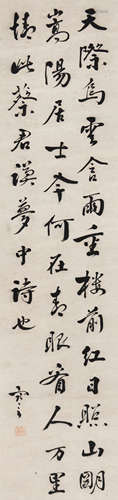 天際烏雲含雨重樓前紅日照山朙
嵩陽居士今何在青眼看人万里
情此蔡君謨夢中詩也